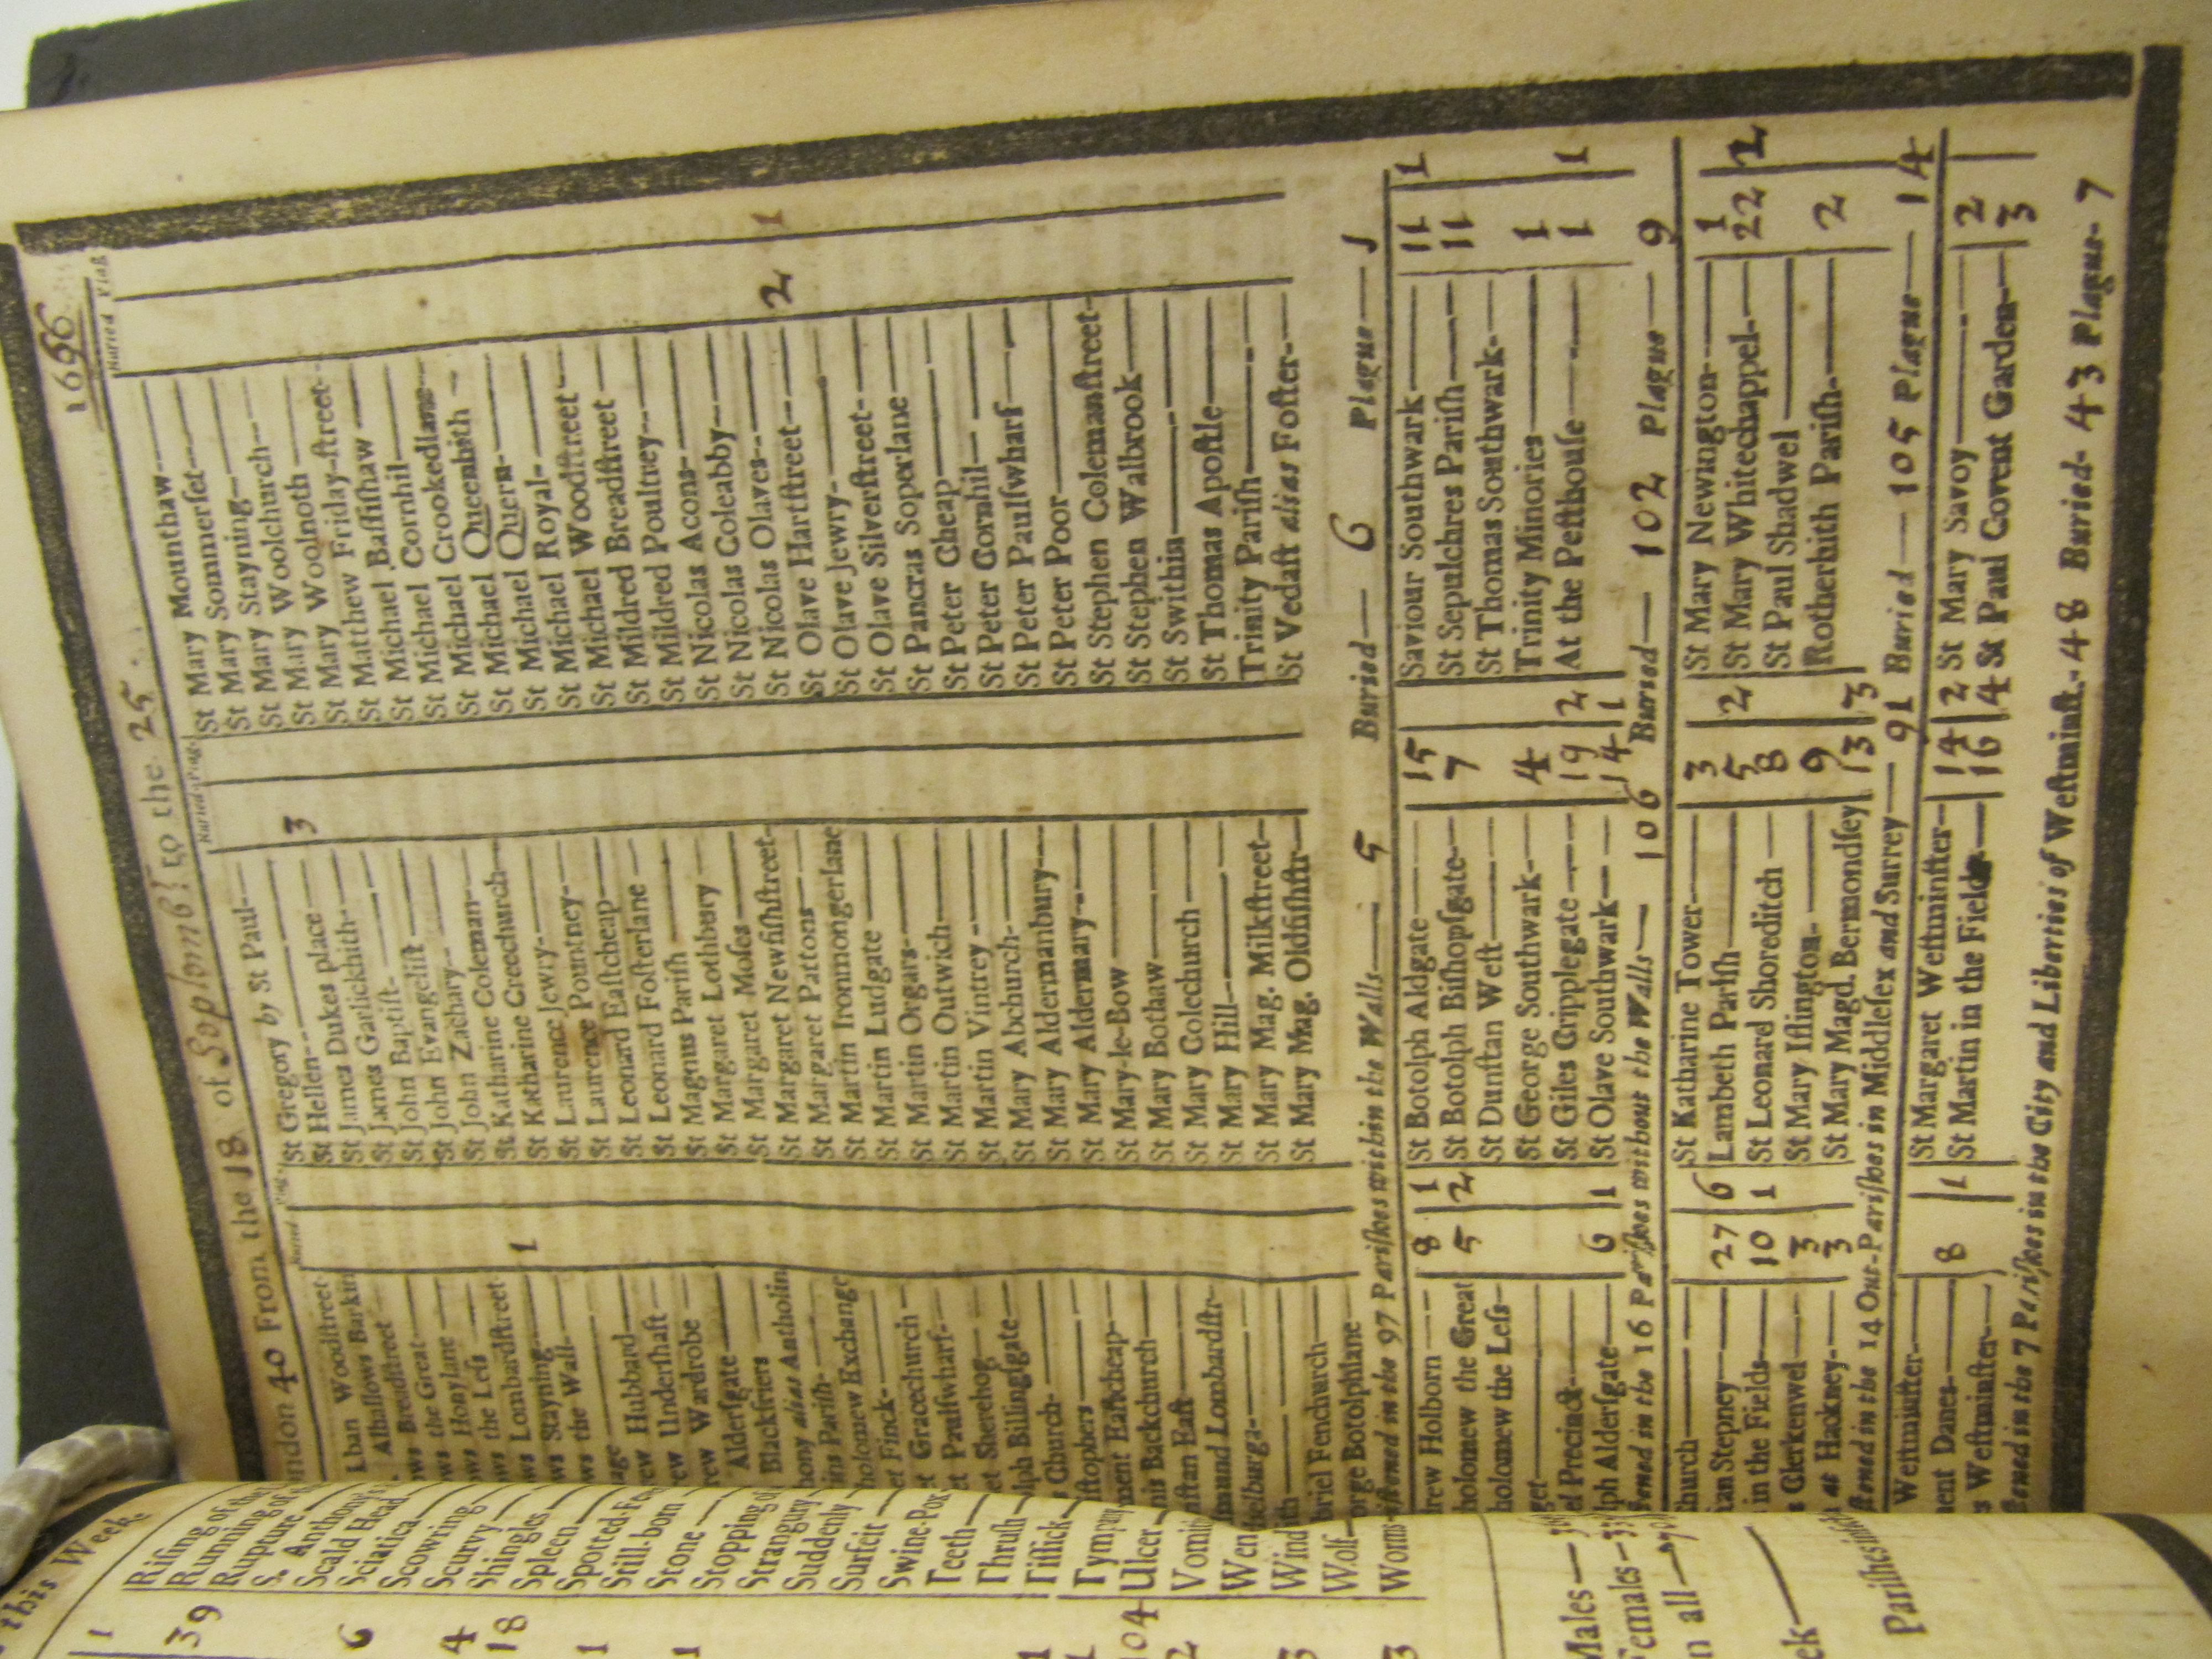 ondon 40 From the 18 of Septemb! to the 25 1666
Buried Plag
Buried Plag
Buried Plag
lban Woodſtreet
Alhallows Barkin
ows Breadſtreet
ows the Great
ows Honylane
ows the Leſs
ows Lombardſtreet
ws Stayning 1
ws the Wall
age
ew Hubbard
ew Underſhaft
rew Wardrobe
Alderſgate
Blackfriers
hony alias Antholin
ins Pariſh
holomew Exchange
et Finck
t Gracechurch
t Paulſwharf
et Sherehog
lph Billingſgate
Church
iſtophers
ment Eaſtcheap
is Backchurch
nſtan Eaſt
mund Lombardſtr
helburga
th
briel Fenchurch
orge Botolphlane
St Gregory by St Paul
St Hellen 3
St James Dukes place
St James Garlickhith
St John Baptiſt
St John Evangeliſt
St John Zachary
St Katharine Coleman
St Katharine Creechurch
St Laurence Jewry
St Laurence Pountney
St Leonard Eaſtcheap
St Leonard Foſterlane
St Magnus Pariſh
St Margaret Lothbury
St Margaret Moſes
St Margaret Newfiſhſtreet
St Margaret Pattons
St Martin Ironmongerlane
St Martin Ludgate
St Martin Orgars
St Martin Outwich
St Martin Vintrey
St Mary Abchurch
St Mary Aldermanbury
St Mary Aldermary
St Mary-le-Bow
St Mary Bothaw
St Mary Colechurch
St Mary Hill
St Mary Mag. Milkſtreet
St Mary Mag. Oldfiſhſtr
St Mary Mounthaw
St Mary Sommerſet
St Mary Stayning
St Mary Woolchurch
St Mary Woolnoth
St Mary Friday-ſtreet
St Matthew
St Michael Baſſiſhaw
St Michael Cornhil
St Michael Crookedlane
St Michael Queenhith
St Michael Quern
St Michael Royal
St Michael Woodſtreet
St Mildred Breadſtreet
St Mildred Poultrey
St Nicolas Acons
St Nicolas Coleabby
St Nicolas Olaves
St Olave Hartſtreet 2 1
St Olave Jewry
St Olave Silverſtreet
St Pancras Soperlane
St Peter Cheap
St Peter Cornhil
St Peter Paulſwharf
St Peter Poor
St Stephen Colemanſtreet
St Stephen Walbrook
St Swithin
St Thomas Apoſtle
Trinity Pariſh
St Vedaſt alias Foſter
iſtened in the 97 Pariſhes within the Walls 5 Buried 6 Plague 1
rew Holborn 8 1
holomew the Great 5 2
holomew the Leſs
get
el Precinct
lph Alderſgate 6 1
St Botolph Aldgate 15
St Botolph Biſhopſgate 7
St Dunſtan Weſt
St George Southwark 4
St Giles Cripplegate 19 2
St Olave Southwark 14 1
Saviour Southwark 11 1
St Sepulchres Pariſh 11
St Thomas Southwark
Trinity Minories 1
At the Peſthouſe 1 1
ſtened in the 16 Pariſhes without the Walls 106 Buried 102 Plague 9
church
tan Stepney 27 6
in the Fields 10 1
s Clerkenwel 3
at Hackney 3
St Katharine Tower 3
Lambeth Pariſh 5 2
St Leonard Shoreditch 8
St Mary Iſlington 9
St Mary Magd. Bermondſey 13 3
St Mary Newington 1
St Mary Whitechappel 22 2
St Paul Shadwel
Rotherhith Pariſh 2
ſtened in the 14 Out-Pariſhes in Middleſex and Surrey 91 Buried 105 Plague 14
Weſtminſter
ent Danes 8 1
s Weſtminſter
St Margaret Weſtminſter 14 2
St Martin in the Fields 16 4
St Mary Savoy 2
St Paul Covent Garden 3
ſtened in the 7 Pariſhes in the City and Liberties of Weſtminſt. 48 Buried 43 Plague 7
this Week
1
39
6
4
18
1
1
104
2
3
3
Riſing of the
Running of
Rupture
S. Anthony's
Scald Head
Sciatica
Scowring
Scurvy
Shingles
Spleen
Spotted-Fe
Still-born
Stone
Stopping of
Strangury
Suddenly
Surfeit
Swine-Pox
Teeth
Thruſh
Tiſſick
Tympany
Ulcer
Vomit
Wen
Wind
Wolf
Worms
Males
Females
n all
ek
Pariſhes